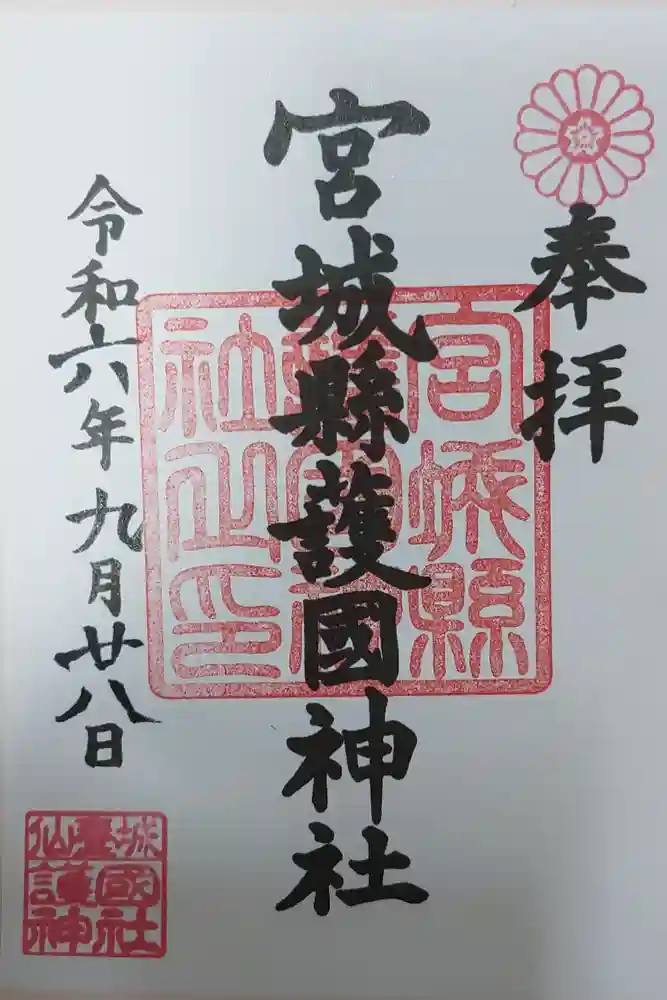 奉拝
宮城縣護國神社
令和六年九月廿八日
宮城縣
護國神
社之印
仙臺城
護國
神社